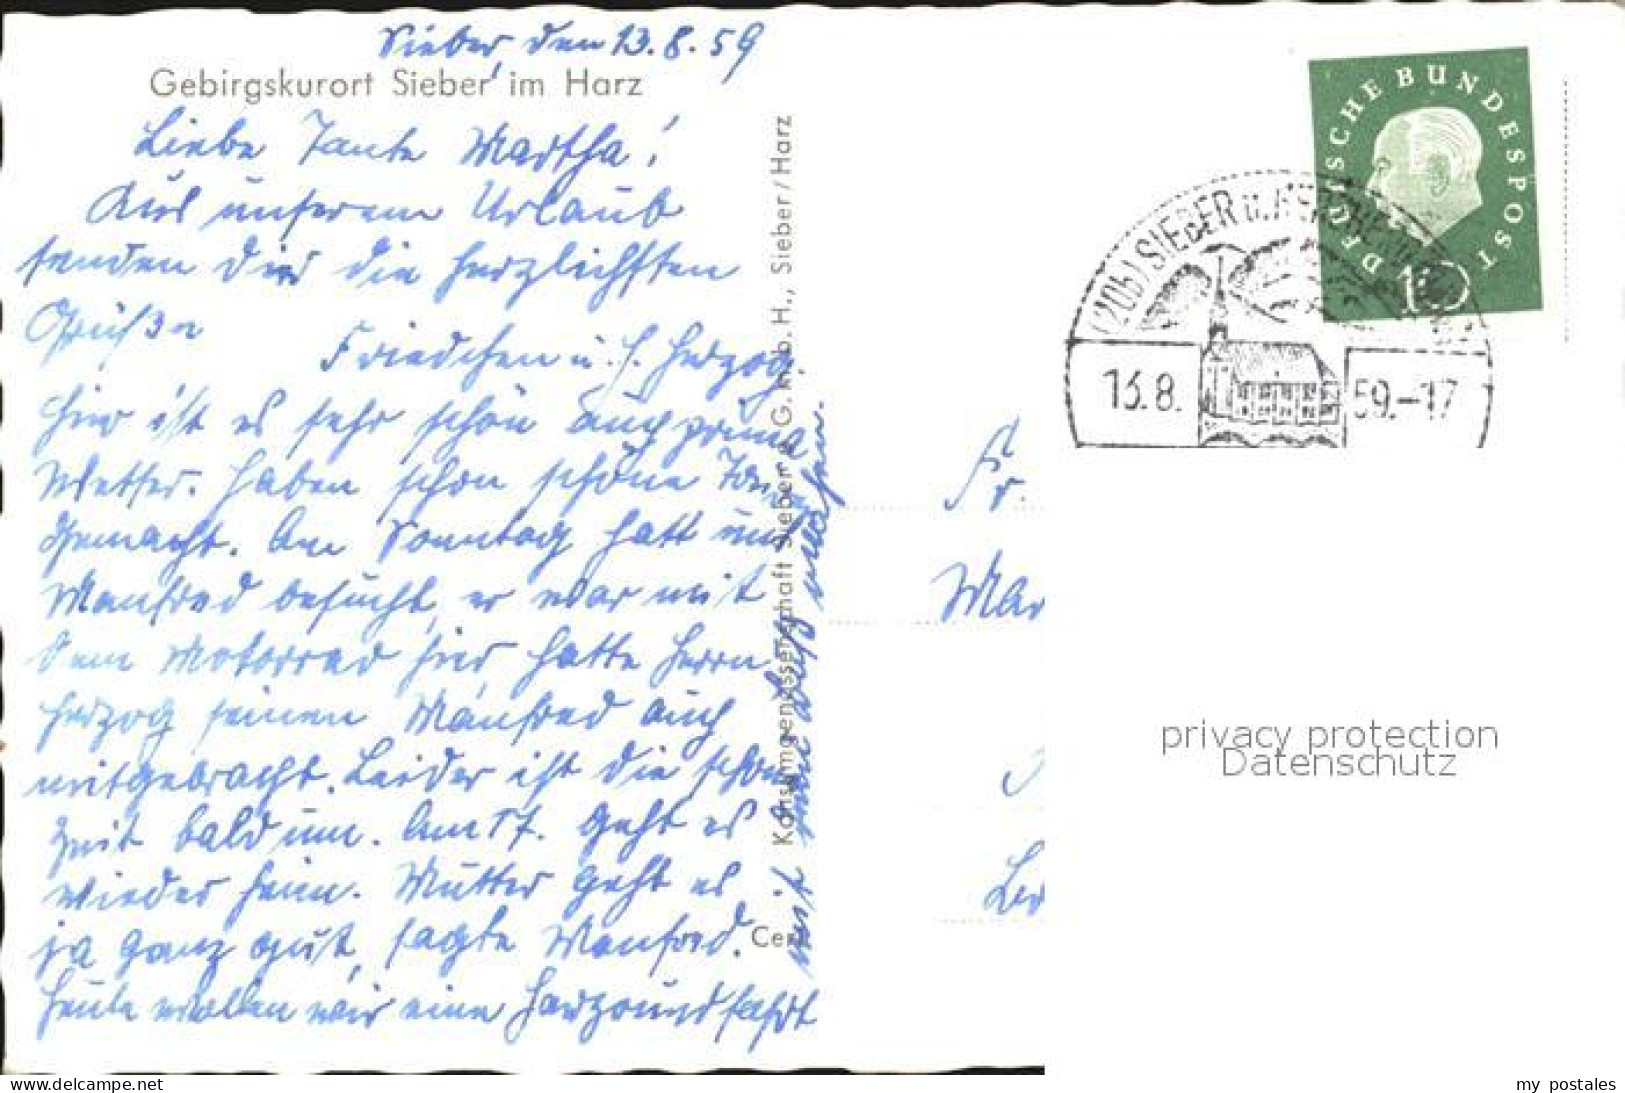 Sieber, den 13.8.59
Gebirgskurort Sieber im Harz
Liebe Tante Martha!
Aus unserem Urlaub
senden Dir die herzlichsten
Grüße
Friedchen u. H. Herzog.
Hier ist es sehr schön auch prima
Wetter. Haben schon schöne Touren
gemacht. Am Sonntag hatt uns
Manfred besucht, er war mit
dem Motorrad hier hatte Herrn
Herzog seinen Manfred auch
mitgebracht. Leider ist die schöne
Zeit bald um. Am 17. geht es
wieder heim. Mutter geht es
ja ganz gut, sagte Manfred.
Heute wollen wir eine Harzrundfahrt
mit machen
Konsumgenossenschaft Sieber e. G. m. b. H., Sieber/Harz
Fr.
Mar
DEUTSCHE BUNDESPOST
10
(20b) SIEBER
13.8. 59.-17
privacy protection
Datenschutz
www.delcampe.net
my_postales